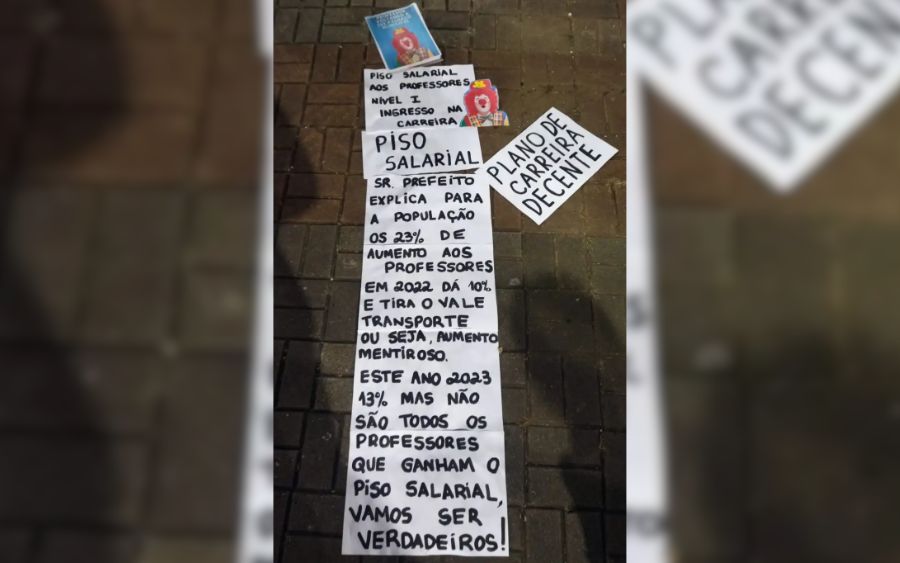 PISO SALARIAL
AOS PROFESSORES
NÍVEL I
INGRESSO NA
CARREIRA
PISO
SALARIAL
PLANO DE
CARREIRA
DECENTE
SR. PREFEITO
EXPLICA PARA
A POPULAÇÃO
OS 23% DE
AUMENTO AOS
PROFESSORES
EM 2022 DÁ 10%
E TIRA O VALE
TRANSPORTE
OU SEJA, AUMENTO
MENTIROSO.
ESTE ANO 2023
13% MAS NÃO
SÃO TODOS OS
PROFESSORES
QUE GANHAM O
PISO SALARIAL,
VAMOS SER
VERDADEIROS!